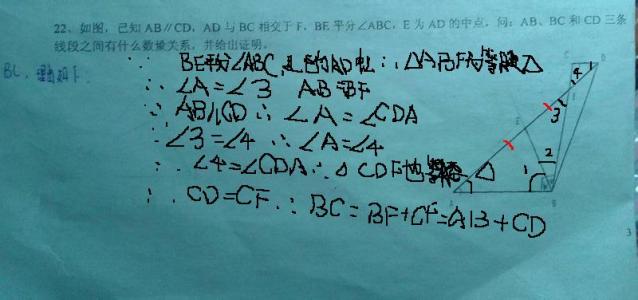 22、如图，已知AB∥CD，AD与BC相交于F，BE平分∠ABC，E为AD的中点，问：AB、BC和CD三条
线段之间有什么数量关系，并给出证明。
BE平分∠ABC，且E为AD中点 ∴ △ABF为等腰△
BC，理由如下：
∴ ∠A=∠3 AB=BF
∵ AB∥CD ∴ ∠A=∠CDA
∵ ∠3=∠4 ∴ ∠A=∠4
∴ ∠4=∠CDA ∴ △CDF也为等腰△
∴ CD=CF ∴ BC=BF+CF=AB+CD
C D
4
3
E
2
1
A B
3